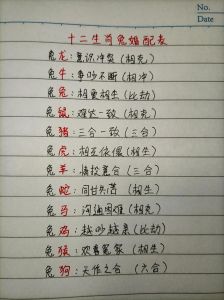 No.
Date
十二生肖兔婚配表
兔龙：意识冲突（相克）
兔牛：争吵不断（相冲）
兔兔：相更相生（比劫）
兔鼠：难达一致（相克）
兔猪：三合一致（三合）
兔虎：相互依偎（相生）
兔羊：情投意合（三合）
兔蛇：同甘共苦（相生）
兔马：沟通困难（相克）
兔鸡：越吵越亲（比劫）
兔猴：欢喜冤家（相生）
兔狗：天作之合（六合）